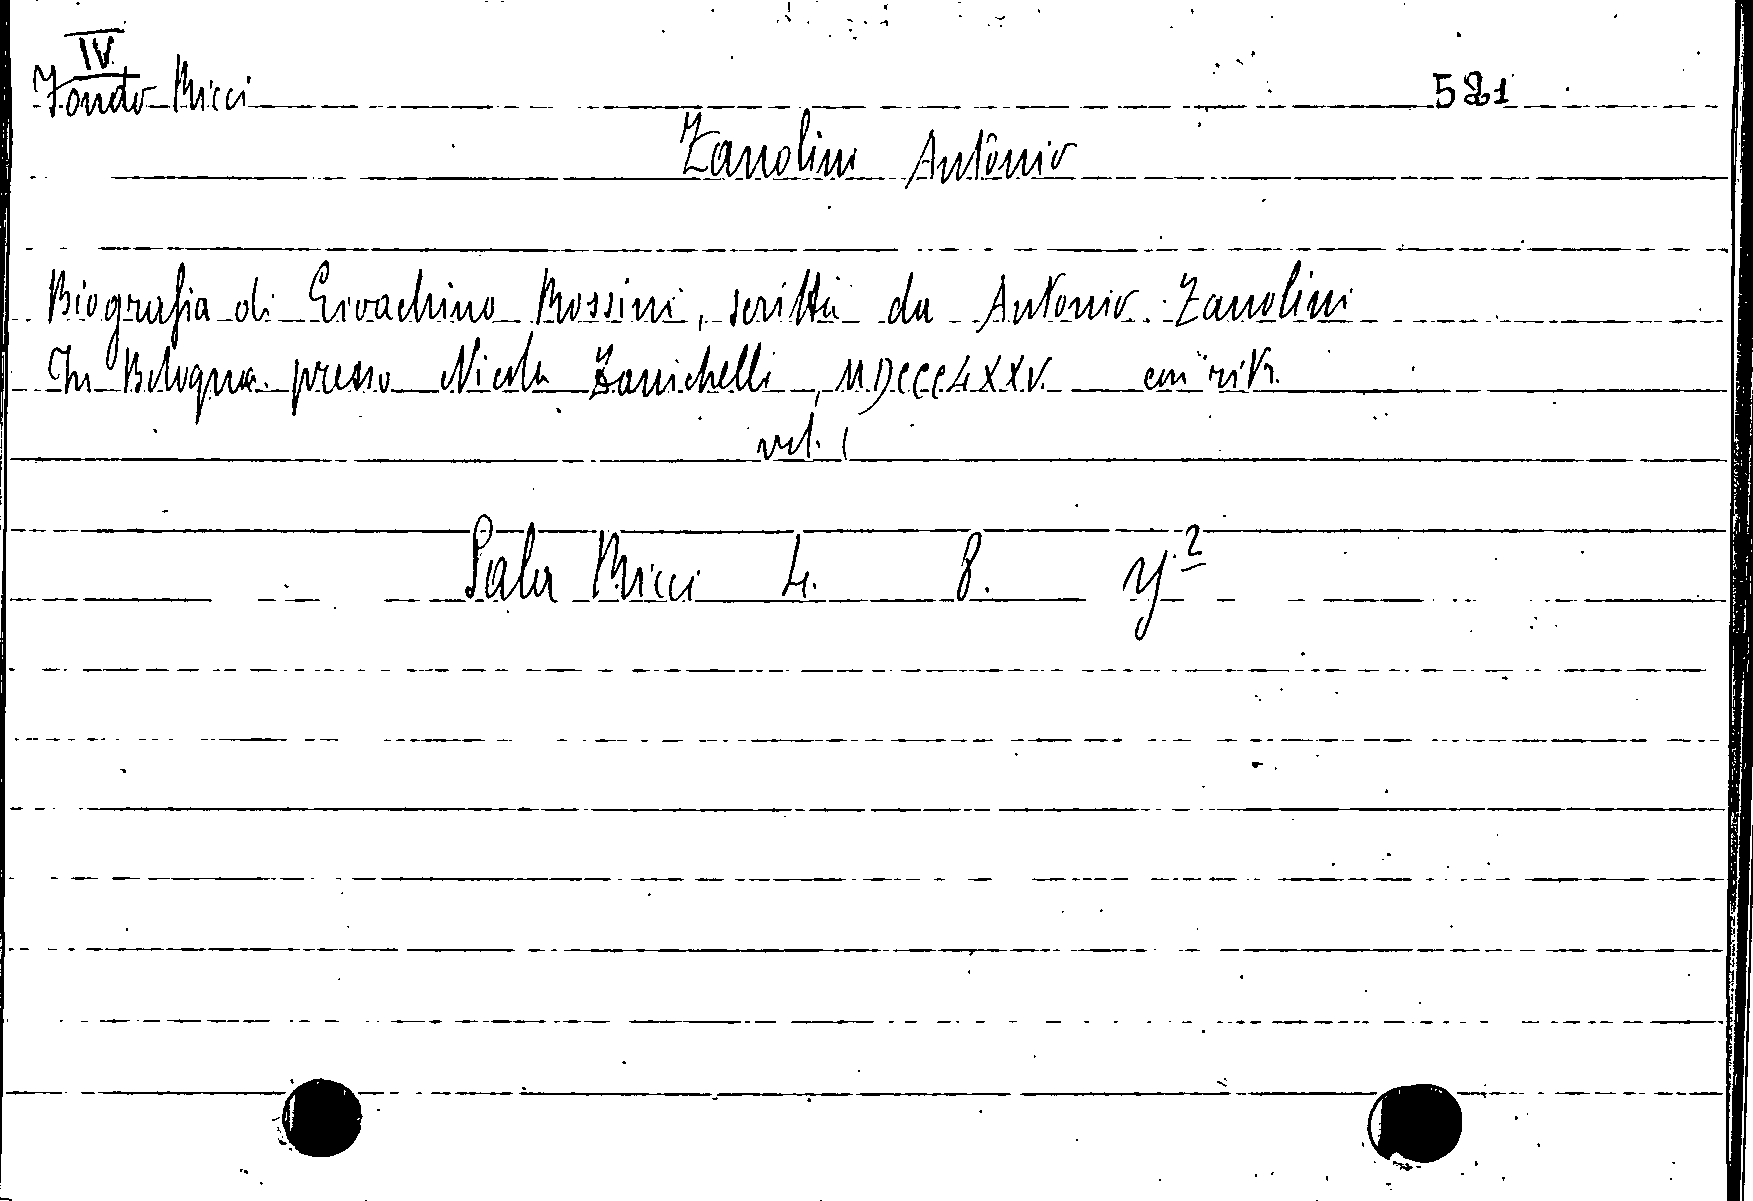 IV
Fondo Ricci 521
Zanolini Antonio
Biografia di Gioachino Rossini, scritta da Antonio Zanolini
In Bologna presso Nicola Zanichelli, MDCCCLXXV. con ritr.
vol. 1
Sala Ricci 4. 8. y²